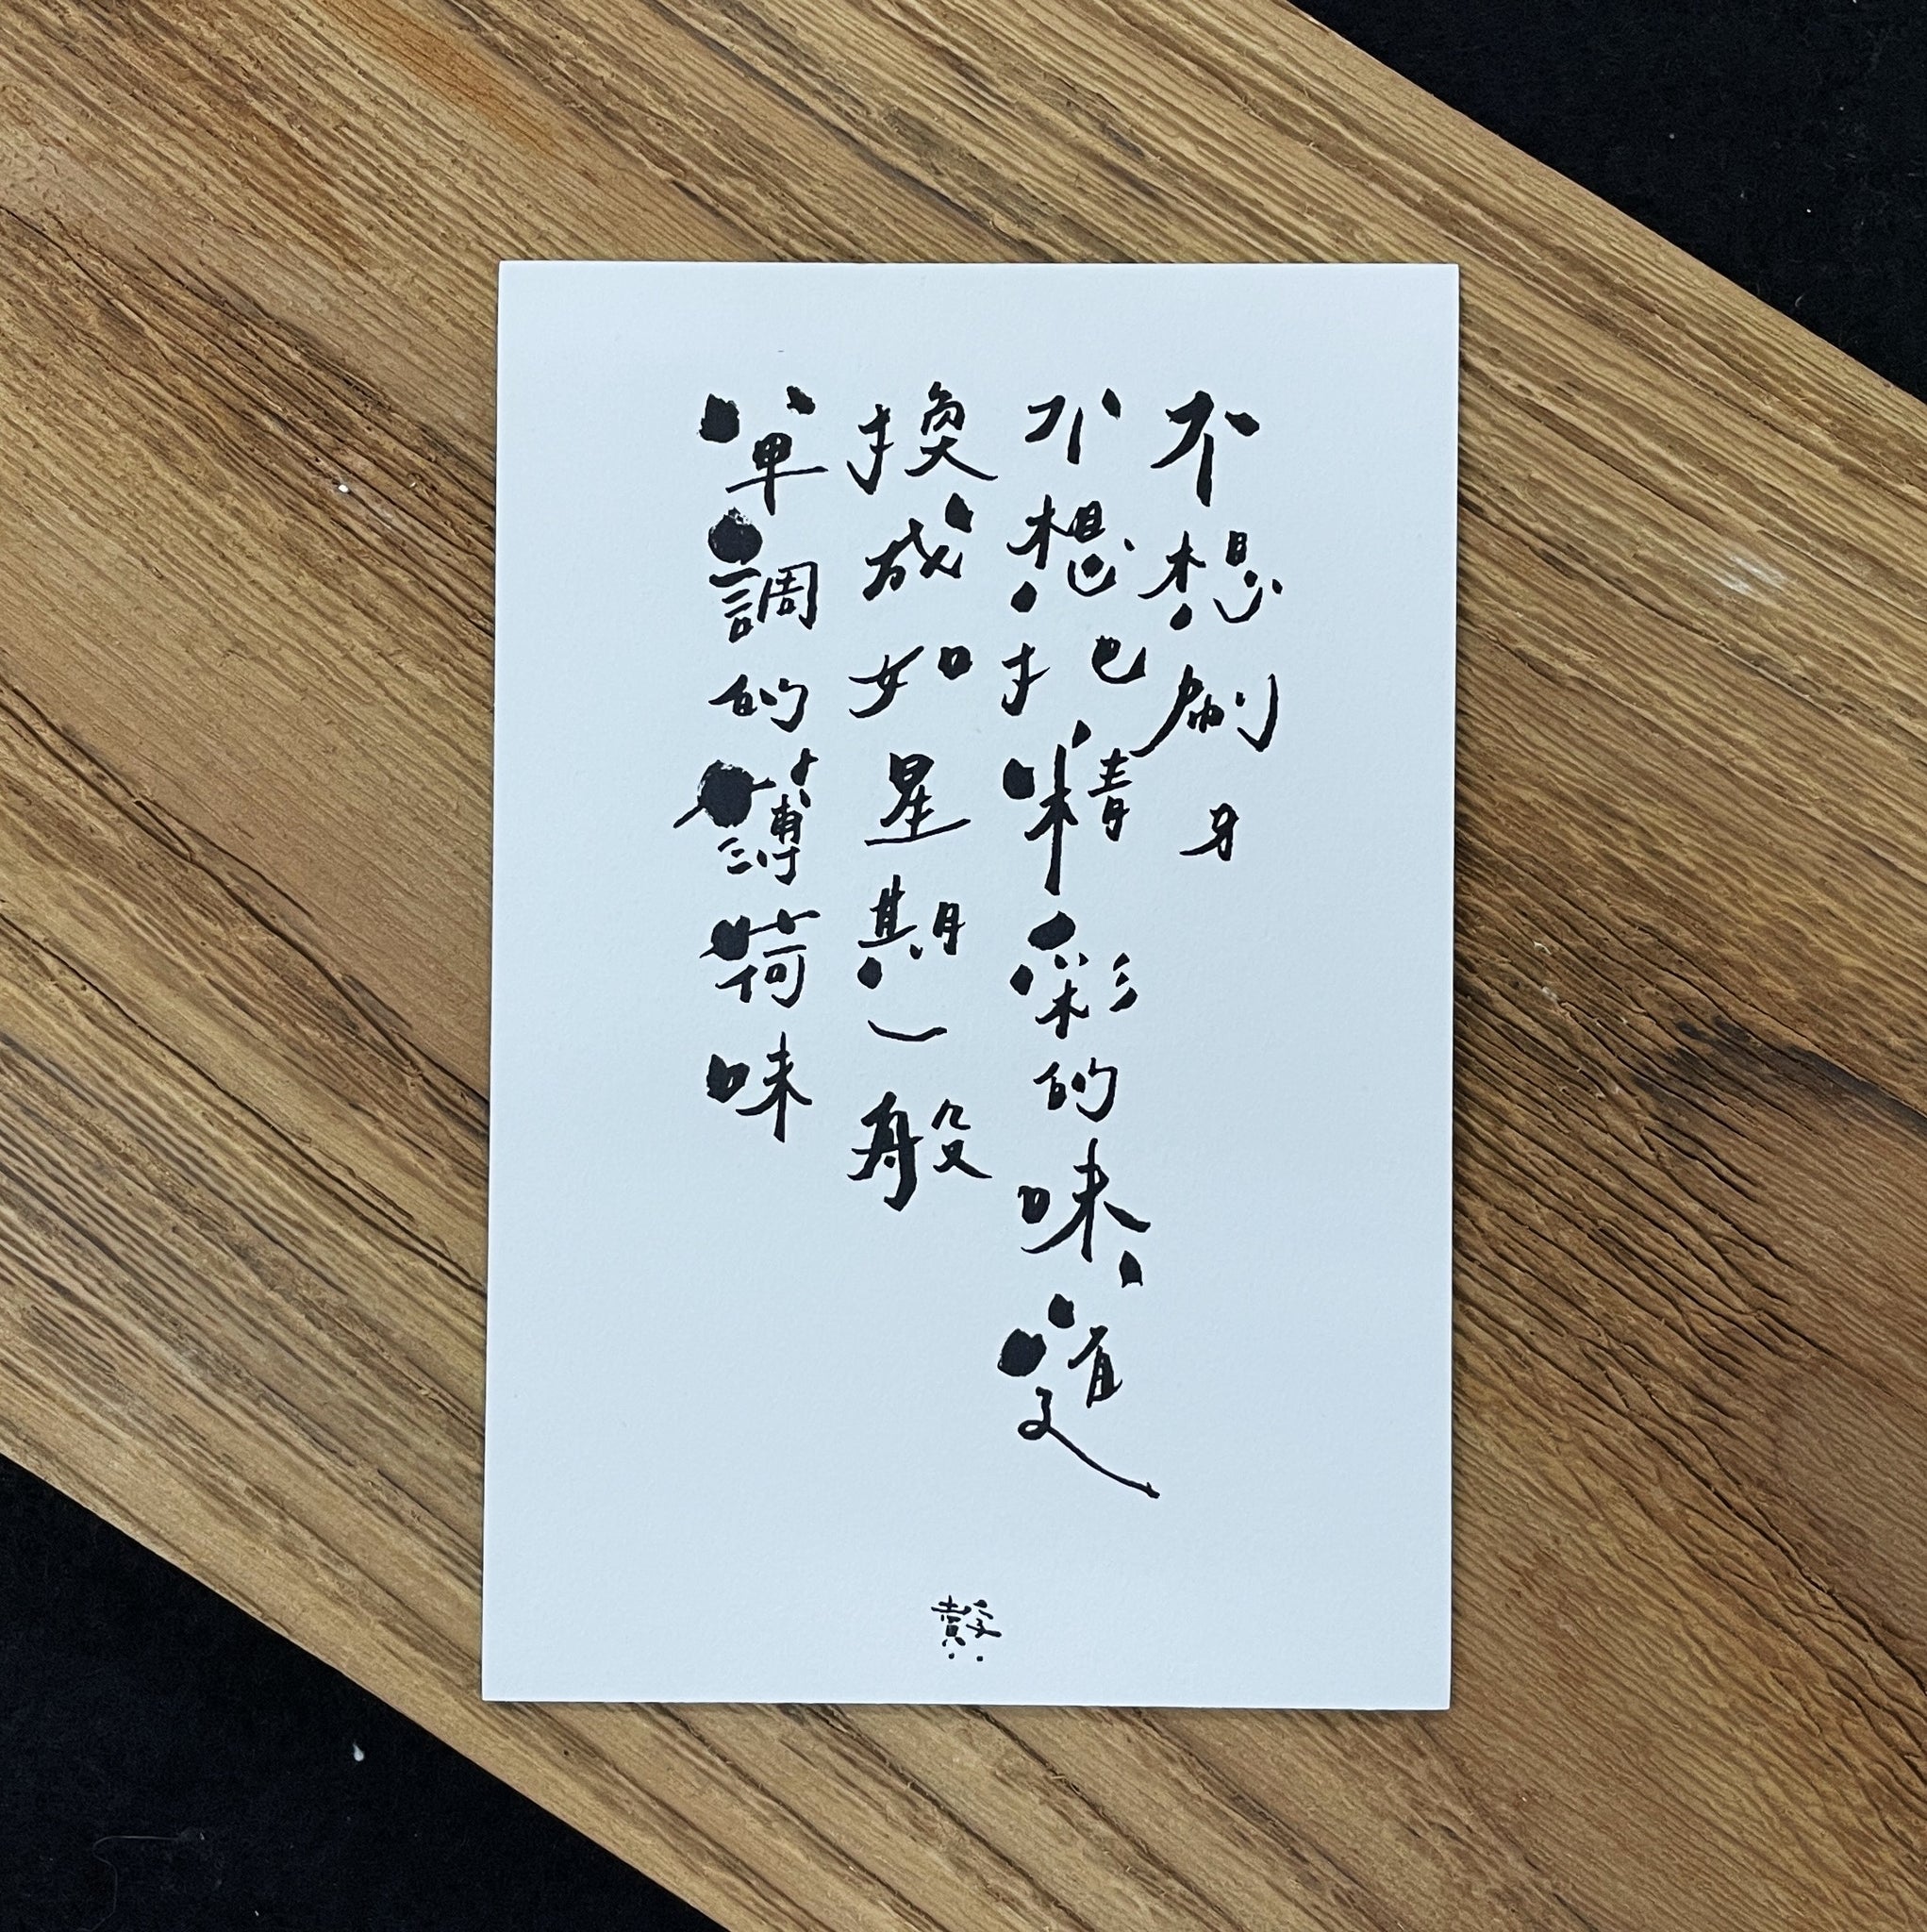 不想刷牙
不想把精彩的味道
換成如星期一般
單調的薄荷味